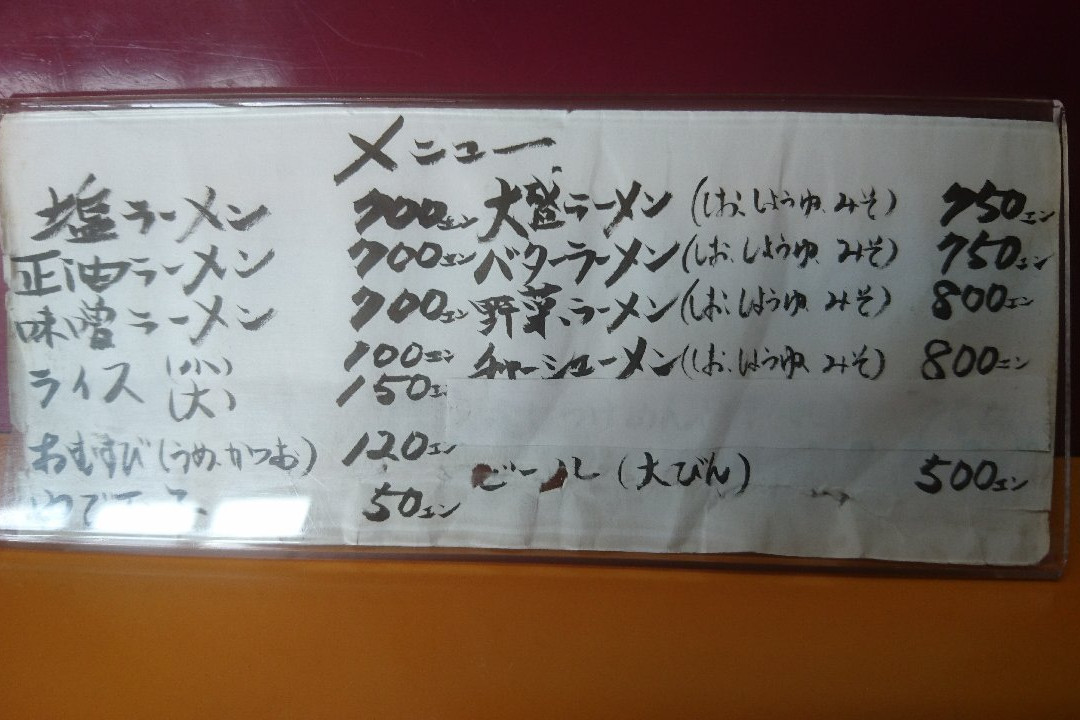 メニュー
塩ラーメン 700エン
正油ラーメン 700エン
味噌ラーメン 700エン
ライス (小) 100エン
(大) 150エ
おむすび(うめ、かつお) 120エン
50エン
大盛ラーメン (しお、しょうゆ、みそ) 750エン
バターラーメン (しお、しょうゆ、みそ) 750エン
野菜ラーメン (しお、しょうゆ、みそ) 800エン
チャーシューメン (しお、しょうゆ、みそ) 800エン
ビール (大びん) 500エン